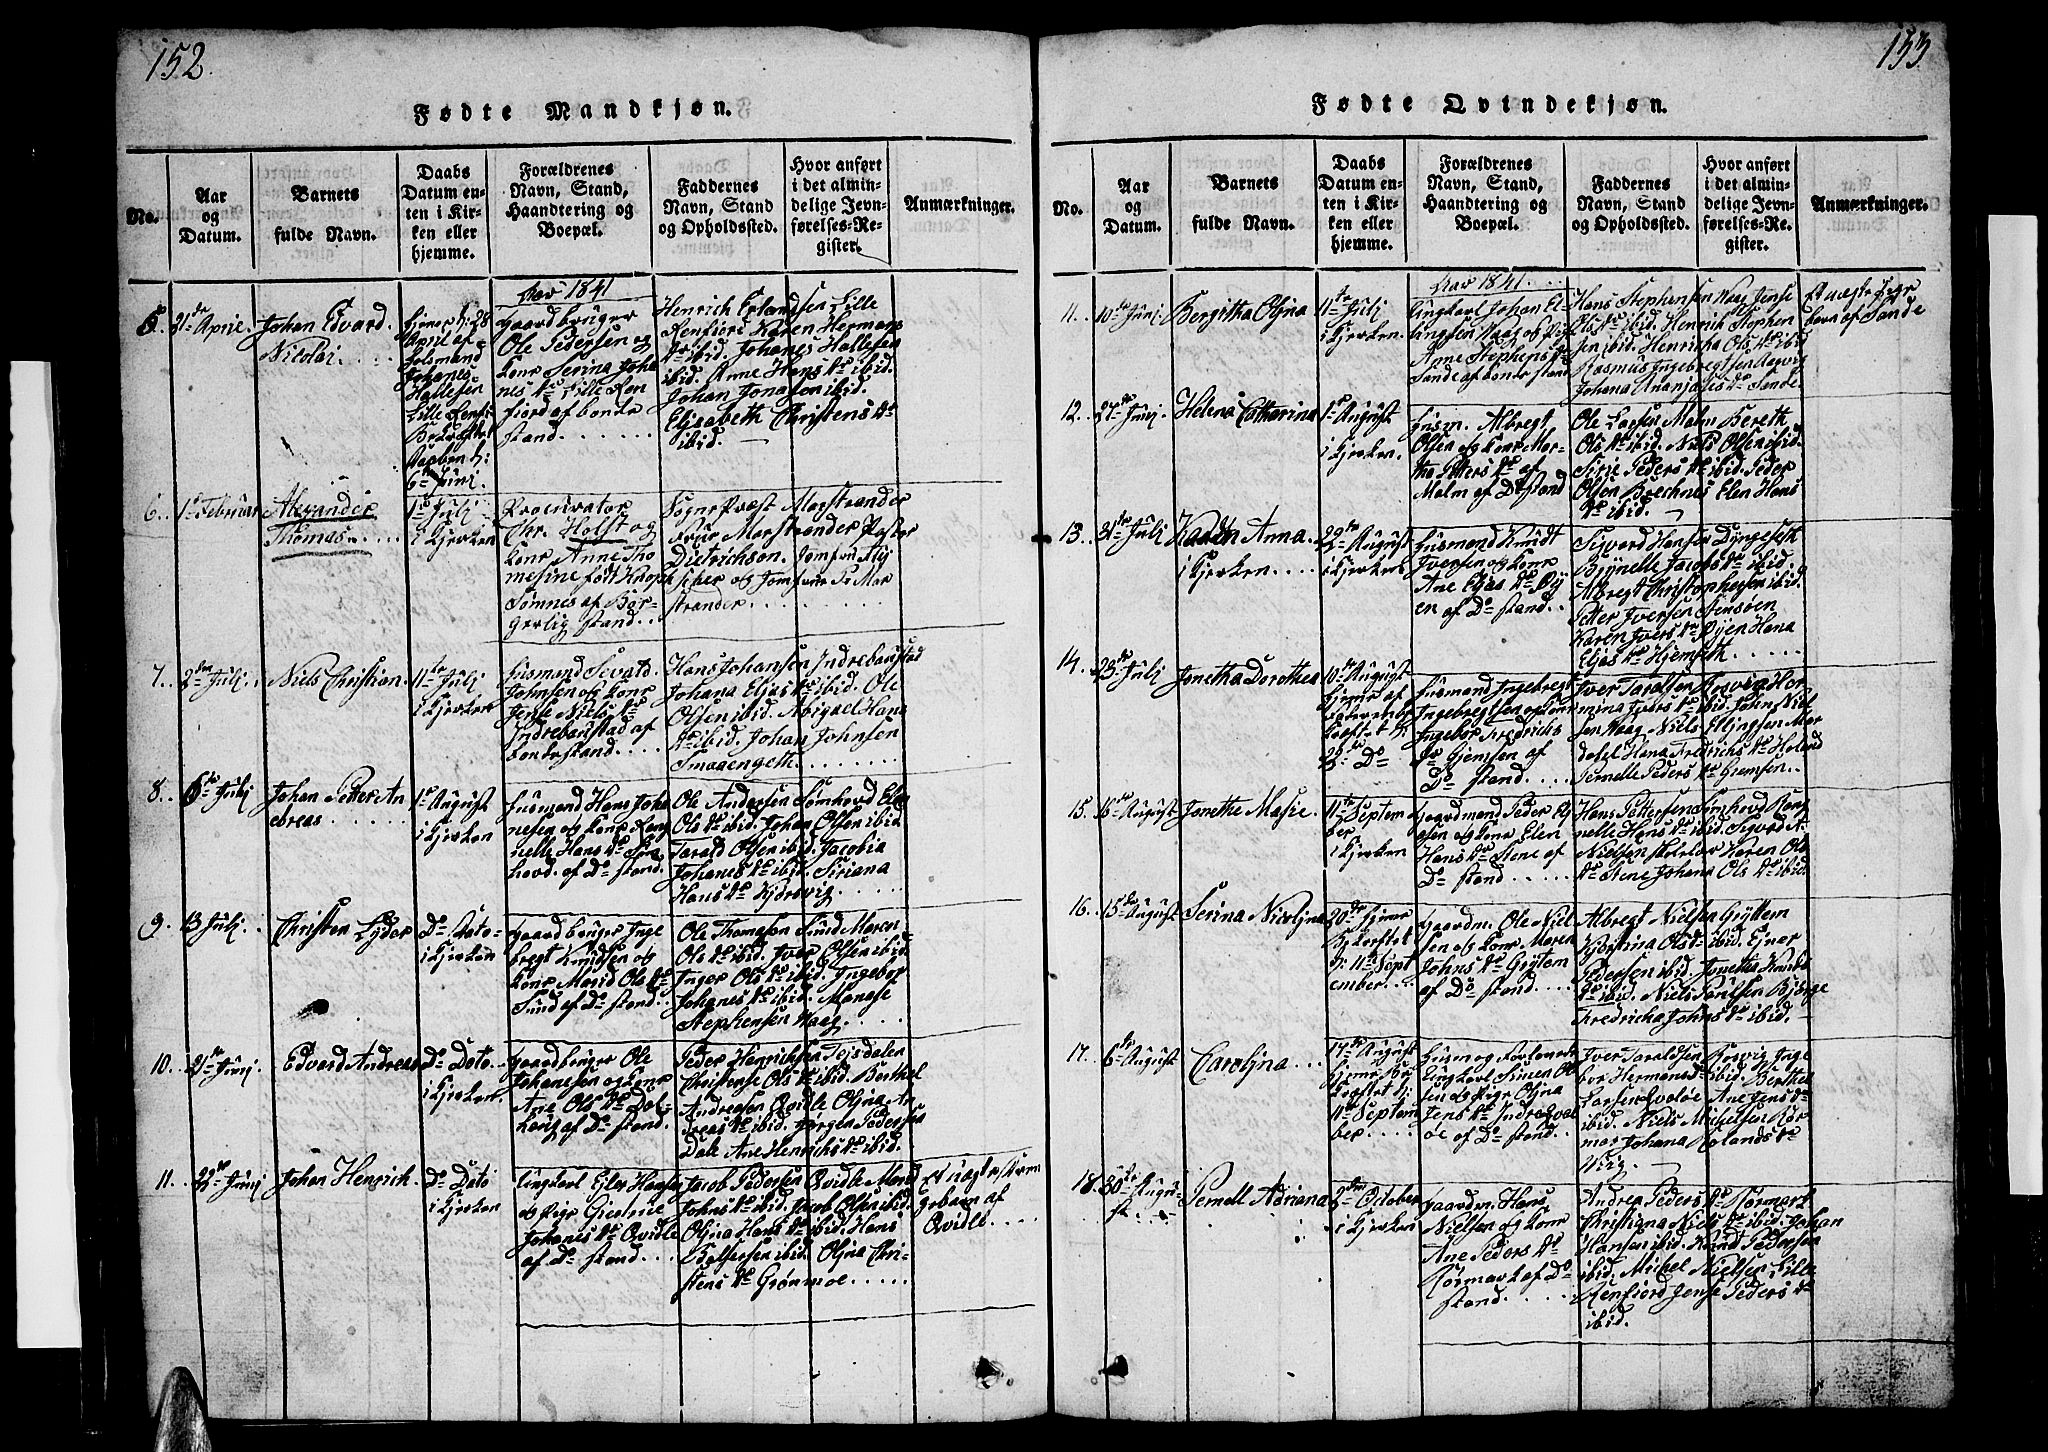 152
Fødte Mandkjøn.
No.
Aar
og
Datum.
Barnets
fulde Navn.
Daabs
Datum en-
ten i Kir-
ken eller
hjemme.
Forældrenes
Navn, Stand,
Haandtering og
Boepæl.
Faddernes
Navn, Stand
og Opholdssted.
Hvor anført
i det almin-
delige Jevn-
førelses-Re-
gister.
Anmærkninger.
Aar 1841
5. 21de April.
Johan Edvard
Nicolai.
hjemme d: 28
April af
Johanes
Hallesen
Lille
6te Juni.
Gaardbruger
Ole Pedersen og
Kone Serina Joha
nes Dr Lille Ren
fiord af bonde
stand.
Henrich Erlandsen Lille
Renfiord Karen Hermans
Dr ibid. Johanes Hallesen
ibid. Anne Hans Dr ibid.
Johan Jonasen ibid.
Elisabeth Christens Dr
ibid.
6. 1ste Februar
Alexander
Thomas.
1ste Juli
i Kjerken
Procurator
Chr. Holst og
Kone Anne Tho
mesine født Knoph
Sømnes af Bor-
gerlig stand.
Sogne Præst Marstrander
Frue Marstrander Pastor
Dietrichson. Jomfru Mij
scher og Jomfrue Mar
strander.
7. 2den Juli.
Niels Christian.
11te Juli
i Kjerken
Huusmand Sivert
Johnsen og Kone
Jensle Niels Dr
Indrebaustad af
bondestand.
Hans Johansen Indrebaustad
Johana Elias Dr ibid. Ole
Olsen ibid. Abigael Hans
Dr ibid. Johan Johnsen
Smaaengeth.
8. 6te Juli
Johan Petter An
dreas
1ste August
i Kjerken
Huusmand Hans Joha
nesen og Kone
nelle Hans Dr Søm
hovd. af Do stand.
Ole Andersen Sømhovd Elen
Ols Dr ibid. Johan Olsen ibid
Tarald Olsen ibid. Jacobia
Johanes Dr ibid. Siriana
Hans Dr Kjørsvig.
9. 13 Juli.
Christen Lyder
Do Dato
i Kjerken
Gaardbruger Inge
bregt Knudsen og
Kone Marid Ols Dr
Sund af Do stand.
Ole Thomasen Sund Maren
Ols Dr ibid. Iver Olsen ibid.
Inger Ols Dr ibid. Ingebor
Johanes Dr ibid. Manase
Stephensen Vaag.
10. 21de Junj.
Edvard Andreas
Do Dato
i Kjerken
Gaardbruger Ole
Johansen og Kone
Ane Ols Dr Dal
houg af Do stand.
Peder Henrichsen Tosdalen
Christense Ols Dr ibid. Berthel
Andreasen Qvidle Oljna An
dreas Dr ibid. Jørgen Pedersen
Dale Ane Henrichs Dr ibid.
11. 22de Junj
Johan Henrich
Do Dato
i Kjerken
Ungkarl Eiler Hansen
og Pige
Johanes Dr Qvidle
af Do stand.
Jacob Pedersen Qvidle Marit
Johns Dr ibid. Jacob Olsen ibid.
Oljna Hans Dr ibid Hans
Baltsersen ibid. Oljna Chri-
stens Dr Grønmoe.
Et uægte Barn
af
Qvidle.
153
Fødte Qvindekjøn.
No.
Aar
og
Datum.
Barnets
fulde Navn.
Daabs
Datum en-
ten i Kir-
ken eller
hjemme.
Forældrenes
Navn, Stand,
Haandtering og
Boepæl.
Faddernes
Navn, Stand
og Opholdssted.
Hvor anført
i det almin-
delige Jevn-
førelses-Re-
gister.
Anmærkninger.
Aar 1841.
11. 10de Junj
Bergitha Oljna
11te Julj
i Kjerken.
Ungkarl Johan El
lingsen Vaag og Pige
Anne Stephens Dr
Sande af bonde stand
Hans Stephensen Vaag Jense
Ols Dr ibid. Henrich Stephen
sen ibid. Henricha Ols Dr ibid
Rasmus Ingebregtsen
Johana Ananias Dr Sande.
Et uægte
barn af Sande
12. 27de Junj
Helena Catharina
1ste August
i Kjerken.
Huusm. Albregt
Olsen og Kone Mar-
tha Petters Dr af
Malm af Do stand
Ole Larsen Malm Bereth
Ols Dr ibid. Niels Olsen ibid.
Sirie Peders Dr ibid. Peder
Olsen Brechnes Elen Hans
Dr ibid.
13. 31te Julj
Karen Anna.
i Kjerken.
29de August
i Kjerken
Huusmand Knudt
Iversen og Kone
Ane Elias Dr Øij
en af Do stand.
Sivard Hansen Dyngeseth
Jacobs Dr ibid.
Albregt Christophersen ibid.
Petter Iversen Stensøen
Karen Ivers Dr Øijen Hans
Elias Dr Hjemseth.
14. 23de Julj
Jonetha Dorothea
10de August
hjemme af
29de Do
Huusmand Ingebregt
Ingebregtsen og Kone
Ingebor Fredrichs
Dr Gjemsen af
Do stand.
Iver Taraldsen Hor
mina Ivers Dr ibid. John Niel
sen Vaag Niels Ellingsen Mar
dalel Hans Fredrichs Dr Holand
Pernelle Peders Dr Gremsen.
15. 16de August
Jonette Marie.
11te Septem
ber
i Kjerken
Gaardmand Peder
og Kone Elen
Hans Dr Stene af
Do stand.
Hans Pettersen Sømhovd
nelle Hans Dr ibid. Sigvard A.
Nielsen skolelær Karen Ols
Dr Stene Johana Ols Dr ibid.
16. 15de August
Serina Nicolina
20de hjemme
d: 11te Sept
ember.
Gaardm. Ole Niel
sen og Kone Maren
Johns Dr Gryttem
af Do stand.
Albregt Nielsen Gryttem
Ols Dr ibid. Ejner
Pedersen ibid. Jonetta Knuds
Dr ibid. Niels Paulsen Bjørge
Fredricha Johns Dr ibid.
17. 6te August
Caroljna
17de August
hjemme
11te Septem
ber.
Huusm og
Ungkarl Simen Ol
sen og Pige Oljna
Jens Dr Indreqval
øe af Do stand.
Iver Taraldsen Horsvig Inge
bor Hermans Dr ibid. Berthel
Larsen Qvaløe Ane Jens Dr
ibid. Niels Michelsen Kor
mar Johana Rolands Dr
Viig.
18. 30te Augu-
st
Pernell Adriana
3die October
i Kjerken
Gaardm. Hans
Nielsen og Kone
Ane Peders Dr
Rørmark af Do
stand.
Andrea Peders Dr Rørmark
Christiana Niels Dr ibid. Johan
Hansen ibid. Knud Pedersen
ibid. Michel Nielsen Lille
Renfiord Jense Peders Dr
ibid.